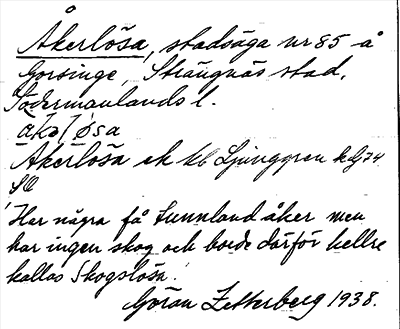 Å
Åkerlösa, stadsäga nr 85 å
Gorsinge, Strängnäs stad,
Södermanlands l.
åkəḷøsa
Åkerlösa ek kb Ljunggren
'Har några få tunnland åker men
har ingen skog och borde därför hellre
kallas Skogslösa.'
Göran Zetterberg 1938.